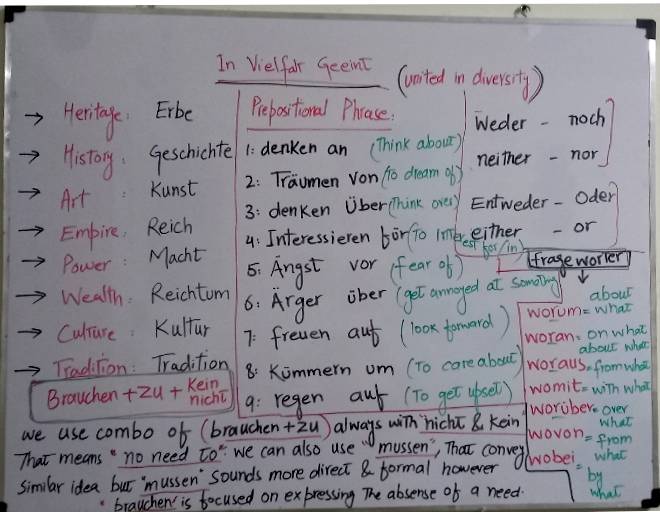 In Vielfalt Geeint
(united in diversity)
→ Heritage: Erbe
→ History: Geschichte
→ Art : Kunst
→ Empire: Reich
→ Power: Macht
→ Wealth: Reichtum
→ Culture: Kultur
→ Tradition: Tradition
Brauchen + zu + kein
nicht
Prepositional Phrase:
1: denken an (Think about)
2: Träumen von (To dream of)
3: denken Über (Think over)
4: Interessieren för (To Interest for/in)
5: Ängst vor (fear of)
6: Ärger über (get annoyed at something
7: freuen auf (look forward)
8: Kümmern um (To care about)
9: regen auf (To get upset)
Weder - noch
neither - nor
Entweder - Oder
either - or
frage worter
about
worum = what
woran = on what
about what
woraus = from what
womit = with what
worüber = over
what
wovon = from
what
wobei = by
what
we use combo of (brauchen + zu) always with "nicht & kein
That means "no need to": we can also use "mussen", That convey
similar idea but "mussen" sounds more direct & formal however
"brauchen" is focused on expressing The absense of a need.